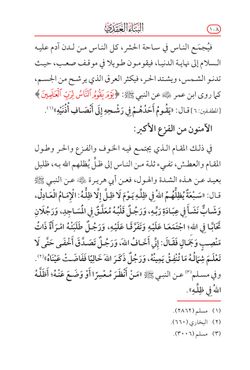 ١٠٨
البناء العقدي
فيُجمَع الناس في ساحة الحشر، كل الناس من لدن آدم عليه
السلام إلى نهاية الدنيا، فيقومون طويلا في موقف صعب، حيث
تدنو الشمس، ويشتد الحر، فيكثر العرق الذي يرشح من الجسم،
كما روى ابن عمر ﷺ عن النبي ﷺ: ﴿يَوْمَ يَقُومُ النَّاسُ لِرَبِّ الْعَالَمِينَ﴾
[المطففين: ٦] قال: «يَقُومُ أَحَدُهُمْ فِي رَشْحِهِ إِلَى أَنْصَافِ أُذُنَيْهِ»(١).
الآمنون من الفزع الأكبر:
في ذلك المقام الذي يجتمع فيه الخوف والفزع والحر وطول
المقام والعطش، تفيء ثلة من الناس إلى ظلٍّ يُظلهم الله به، ظليل
بعيد عن هذه الشدة والهول، فعن أبي هريرة عن النبي ﷺ
قال: «سَبْعَةٌ يُظِلُّهُمُ اللهُ فِي ظِلِّهِ يَوْمَ لَا ظِلَّ إِلَّا ظِلُّهُ: الْإِمَامُ الْعَادِلُ،
وَشَابٌّ نَشَأَ فِي عِبَادَةِ رَبِّهِ، وَرَجُلٌ قَلْبُهُ مُعَلَّقٌ فِي الْمَسَاجِدِ، وَرَجُلَانِ
تَحَابَّا فِي اللهِ؛ اجْتَمَعَا عَلَيْهِ، وَتَفَرَّقَا عَلَيْهِ، وَرَجُلٌ طَلَبَتْهُ امْرَأَةٌ ذَاتُ
مَنْصِبٍ وَجَمَالٍ فَقَالَ: إِنِّي أَخَافُ اللهَ، وَرَجُلٌ تَصَدَّقَ أَخْفَى حَتَّى لَا
تَعْلَمَ شِمَالُهُ مَا تُنْفِقُ يَمِينُهُ، وَرَجُلٌ ذَكَرَ اللهَ خَالِيًا فَفَاضَتْ عَيْنَاهُ»(٢).
وفي مسلم(٣) عن النبي ﷺ «مَنْ أَنْظَرَ مُعْسِرًا أَوْ وَضَعَ عَنْهُ؛ أَظَلَّهُ
اللهُ فِي ظِلِّهِ».
(١) مسلم (٢٨٦٢).
(٢) البخاري (٦٦٠).
(٣) مسلم (٣٠٠٦).